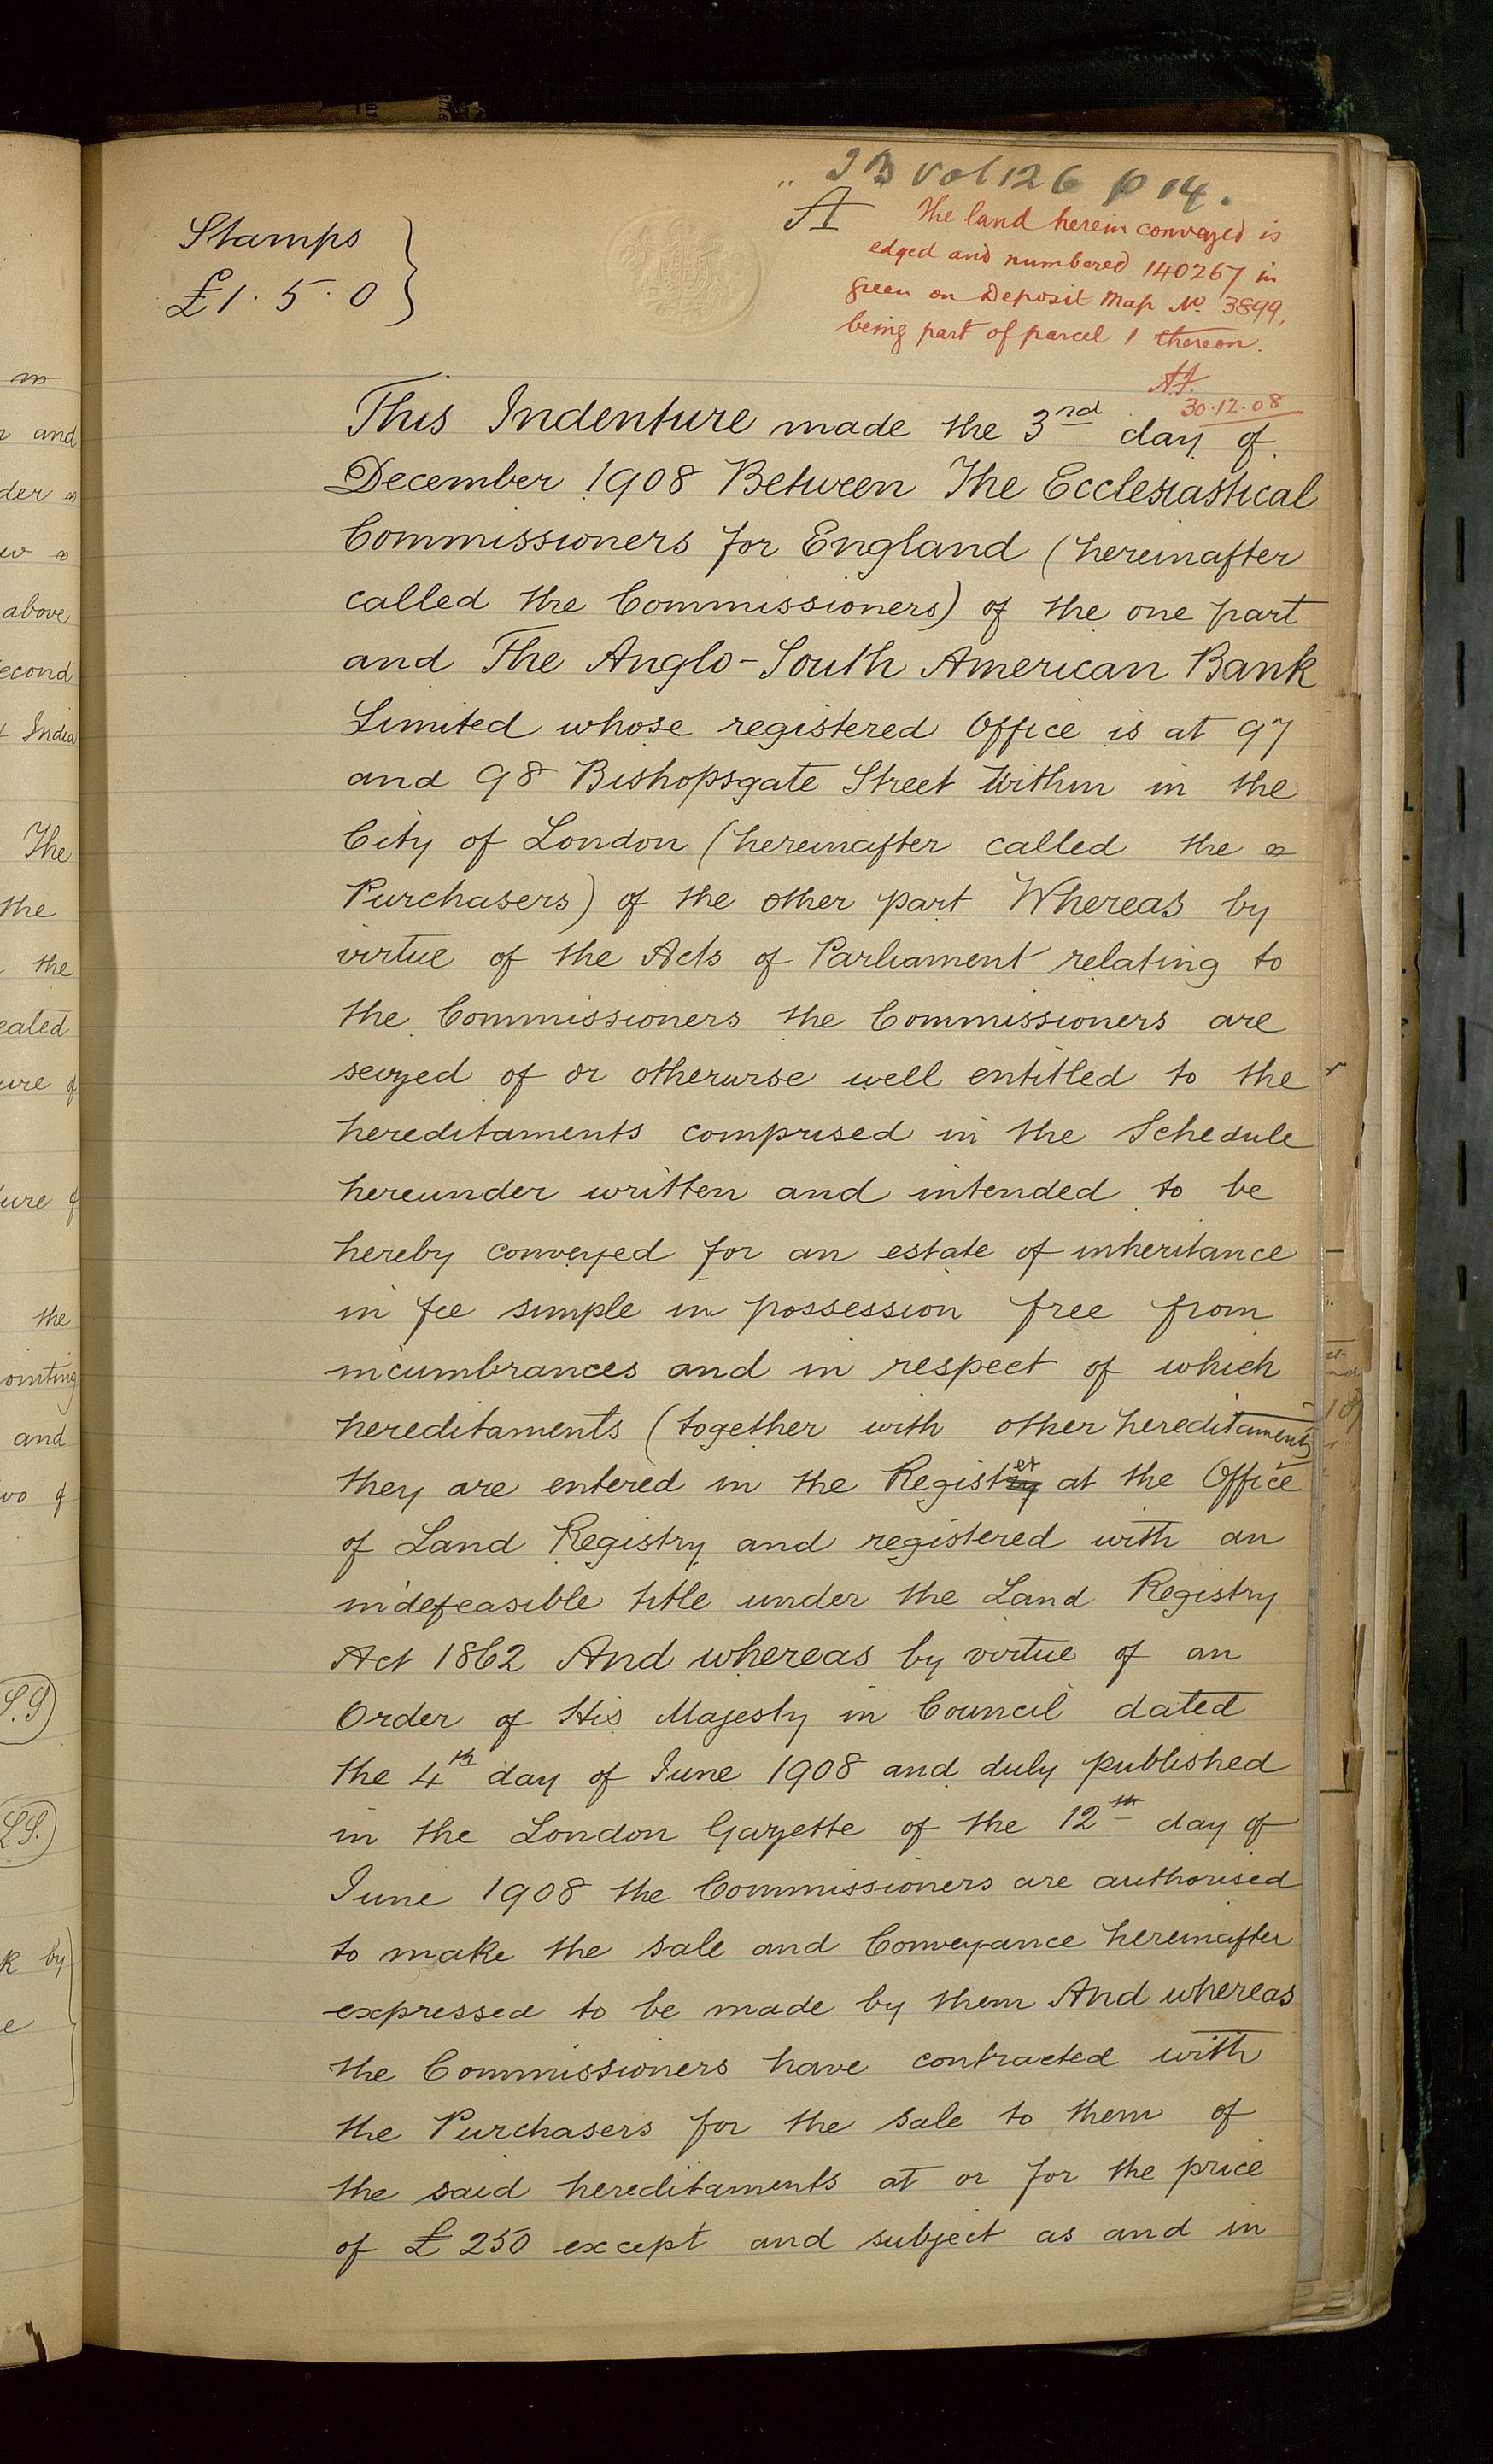 Vol 126 p 14.
A
Stamps
£1.5.0
The land herein conveyed is
edged and numbered 140267 in
green on Deposit Map No. 3899,
being part of parcel 1 thereon.
30.12.08
This Indenture made the 3rd day of
December 1908 Between The Ecclesiastical
Commissioners for England (hereinafter
called the Commissioners) of the one part
and The Anglo-South American Bank
Limited whose registered Office is at 97
and 98 Bishopsgate Street Within in the
City of London (hereinafter called the
Purchasers) of the other part Whereas by
virtue of the Acts of Parliament relating to
the Commissioners the Commissioners are
seized of or otherwise well entitled to the
hereditaments comprised in the Schedule
hereunder written and intended to be
hereby conveyed for an estate of inheritance
in fee simple in possession free from
incumbrances and in respect of which
hereditaments (together with other hereditaments
they are entered in the Register at the Office
of Land Registry and registered with an
indefeasible title under the Land Registry
Act 1862 And whereas by virtue of an
Order of His Majesty in Council dated
the 4th day of June 1908 and duly published
in the London Gazette of the 12th day of
June 1908 the Commissioners are authorised
to make the sale and Conveyance hereinafter
expressed to be made by them And whereas
the Commissioners have contracted with
the Purchasers for the sale to them of
the said hereditaments at or for the price
of £250 except and subject as and in
and
above
India
The
the
the
the
and
by